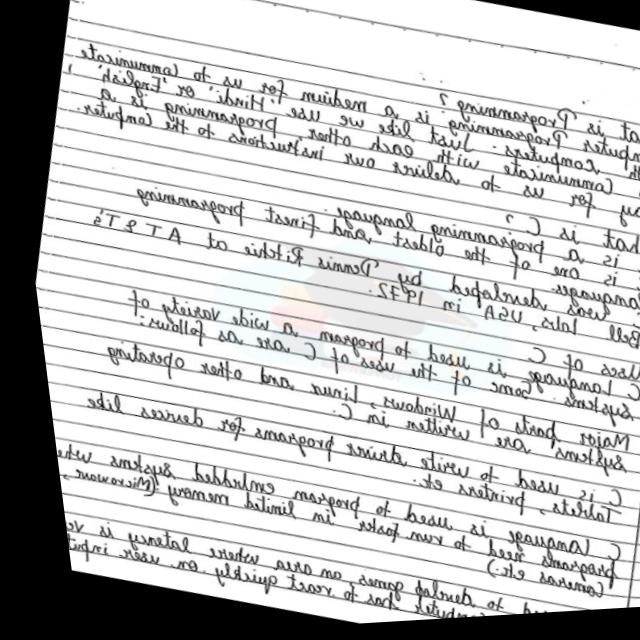 at is Programming ?
mputer Programming is a medium for us to Communicate
th Computers. Just like we use 'Hindi' or 'English'
Communicate with each other, programming is a
ay for us to deliver our instructions to the Computer.
hat is C ?
is a programming language.
is one of the oldest and finest programming
languages.
was developed by Dennis Ritchie at AT & T's
Bell labs, USA in 1972.
Uses of C
C Language is used to program a wide variety of
Systems. Some of the uses of C are as follows:
Major parts of Windows, Linux and other operating
Systems are written in C.
C is used to write driver programs for devices like
Tablets, printers etc.
C Language is used to program embedded systems whe
programs need to run faster in limited memory (Microwave,
Cameras etc.)
ed to develop games, an area where latency is ve
mputer has to react quickly on user input